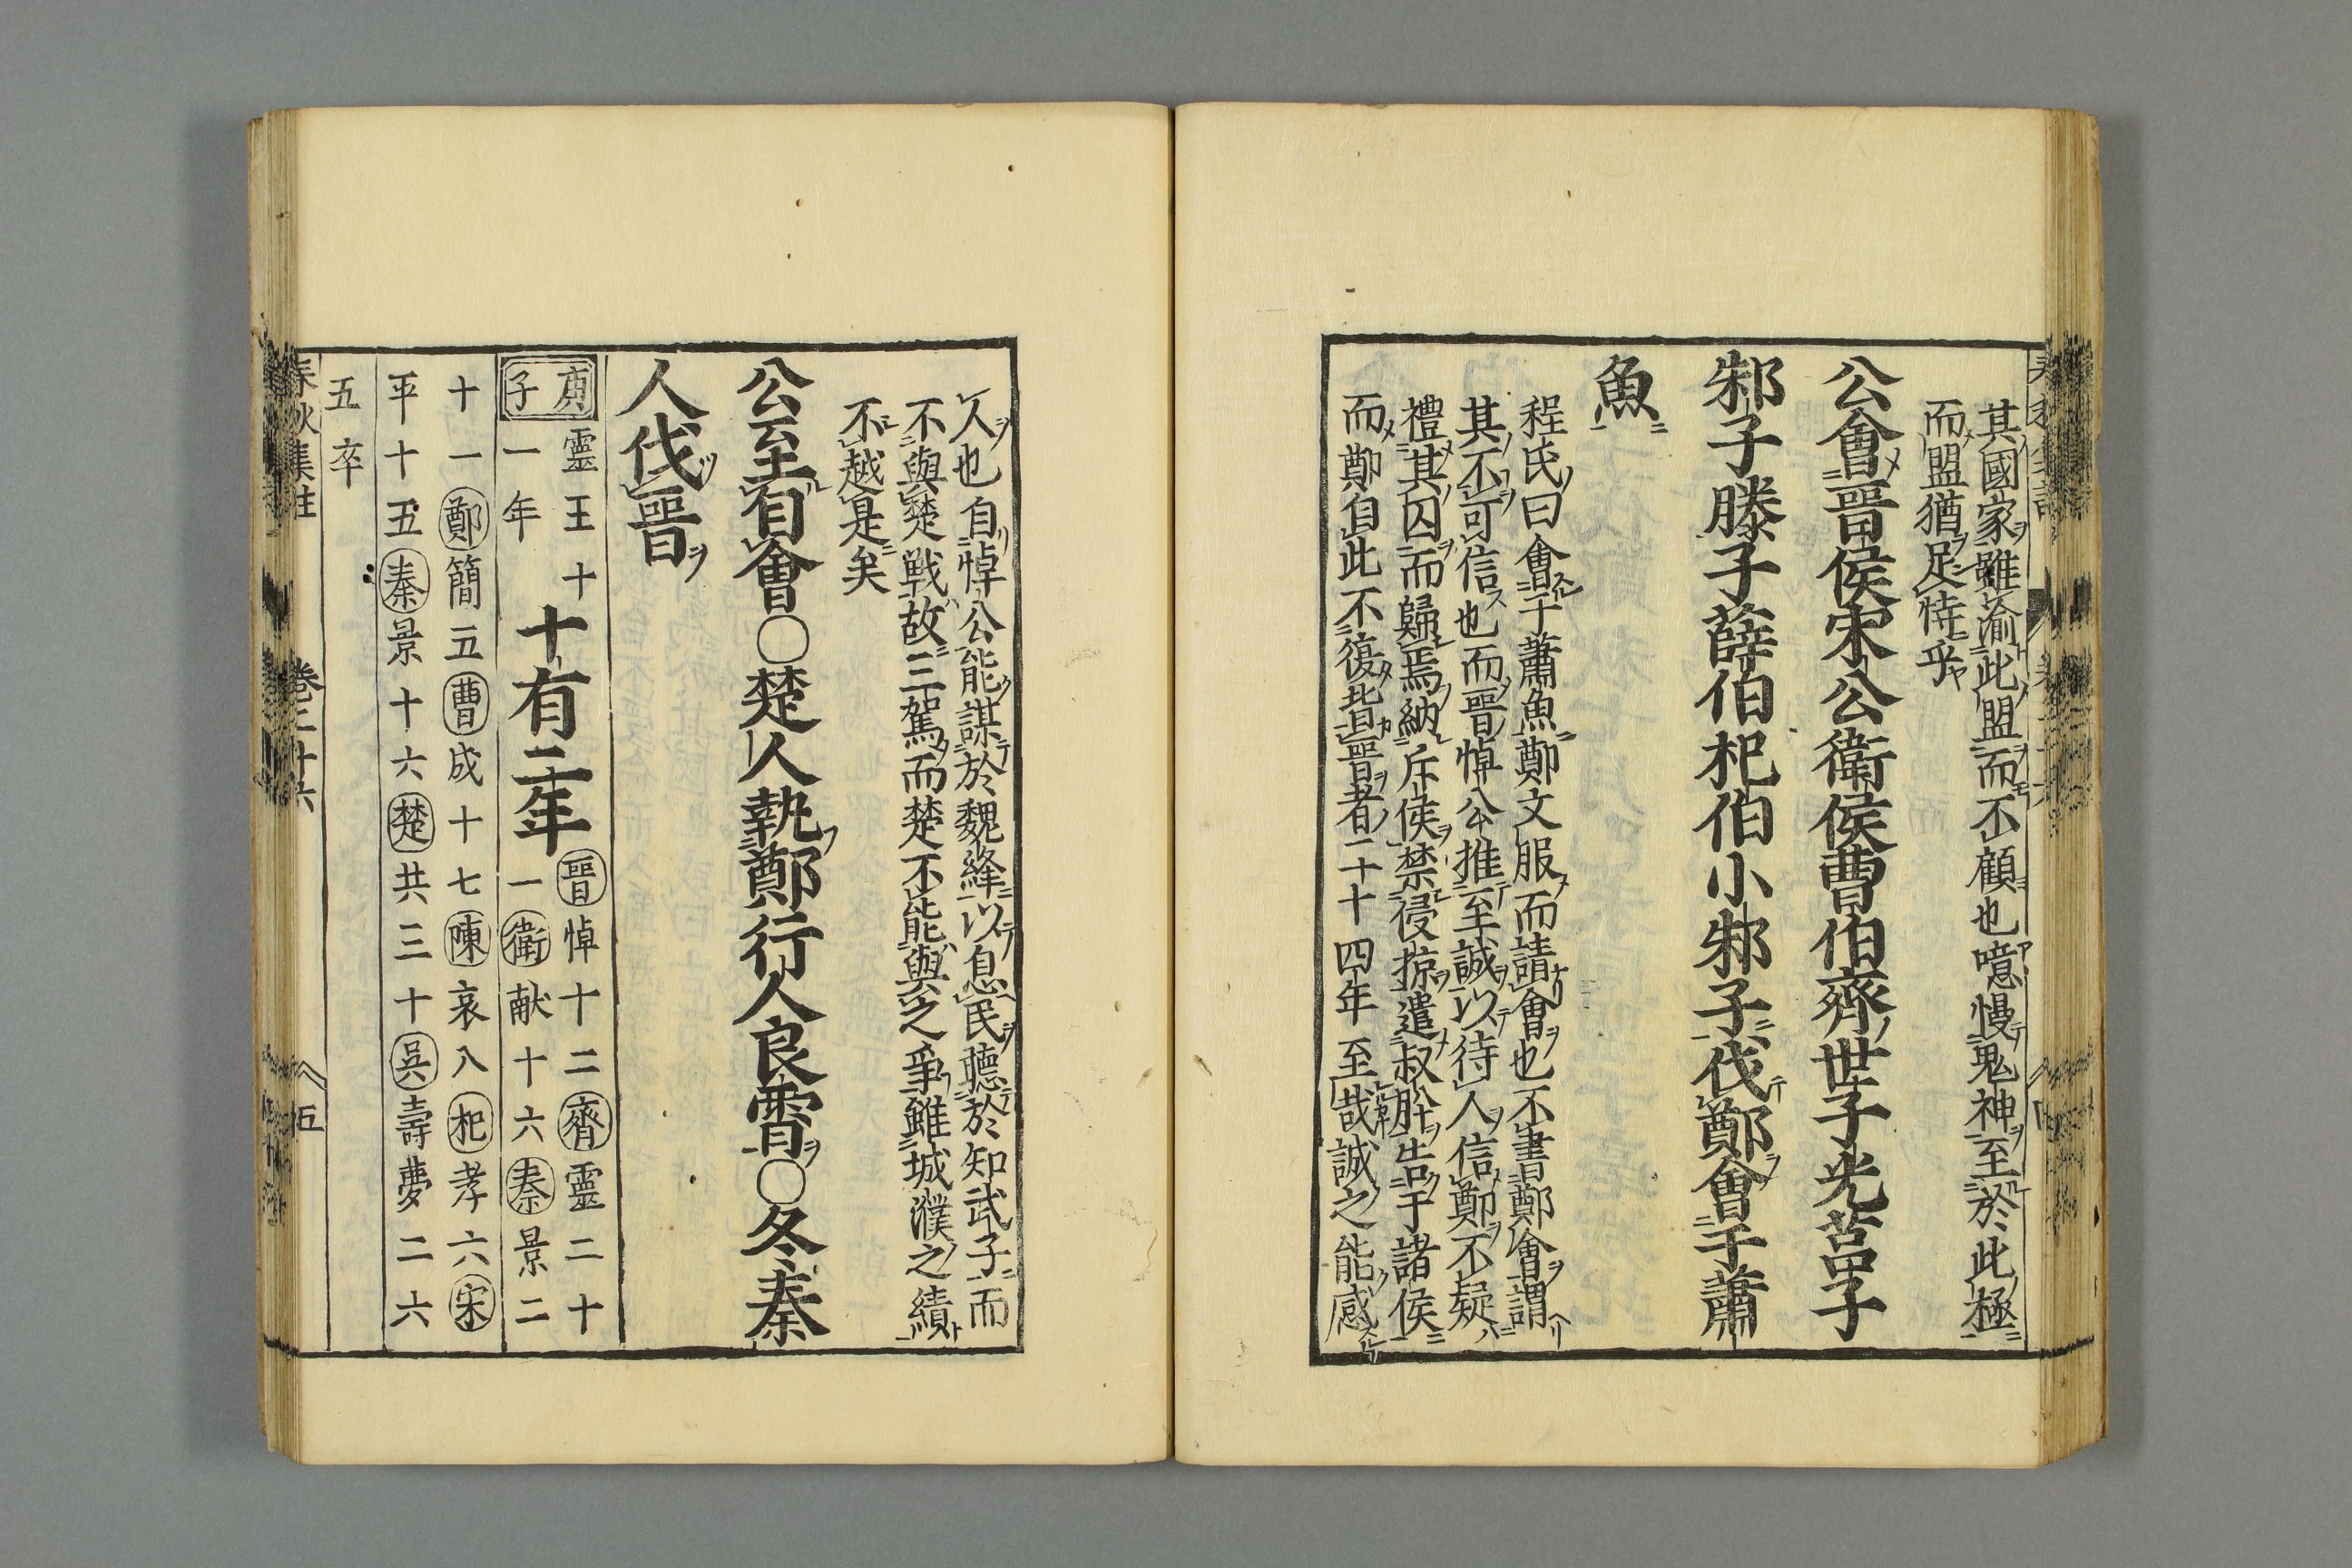 其國家雖渝此盟而不顧也噫慢鬼神至於此極
而盟猶足恃乎
公會晉侯宋公衛侯曹伯齊世子光莒子
邾子滕子薛伯杞伯小邾子伐鄭會于蕭
魚
程氏曰會于蕭魚鄭又服而請會也不書鄭會謂
其不可信也而晉悼公推至誠以待人信鄭不疑
禮其囚而歸焉納斥候禁侵掠遣叔肸告于諸侯
而鄭自此不復背晉者二十四年至哉誠之能感
人也自悼公能謀於魏絳以息民聽於知武子而
不與楚戦故三駕而楚不能與之爭雖城濮之績
不越是矣
公至自會○楚人執鄭行人良霄○冬秦
人伐晉
庚子 靈王十一年 十有二年 晉悼十二齊靈二十一衛献十六秦景二
十一鄭簡五曹成十七陳哀八杞孝六宋
平十五秦景十六楚共三十吳壽夢二六
五卒
春秋集註 卷二十六 五